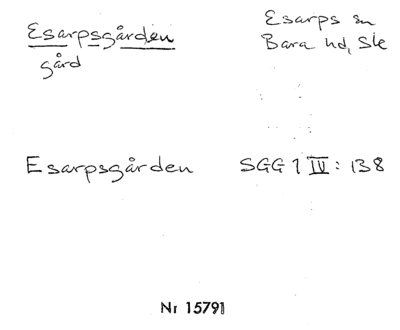 Esarpsgården
gård
Esarps sn
Bara hd, Ske
Esarpsgården SGG 1 IV: 138
Nr 15791